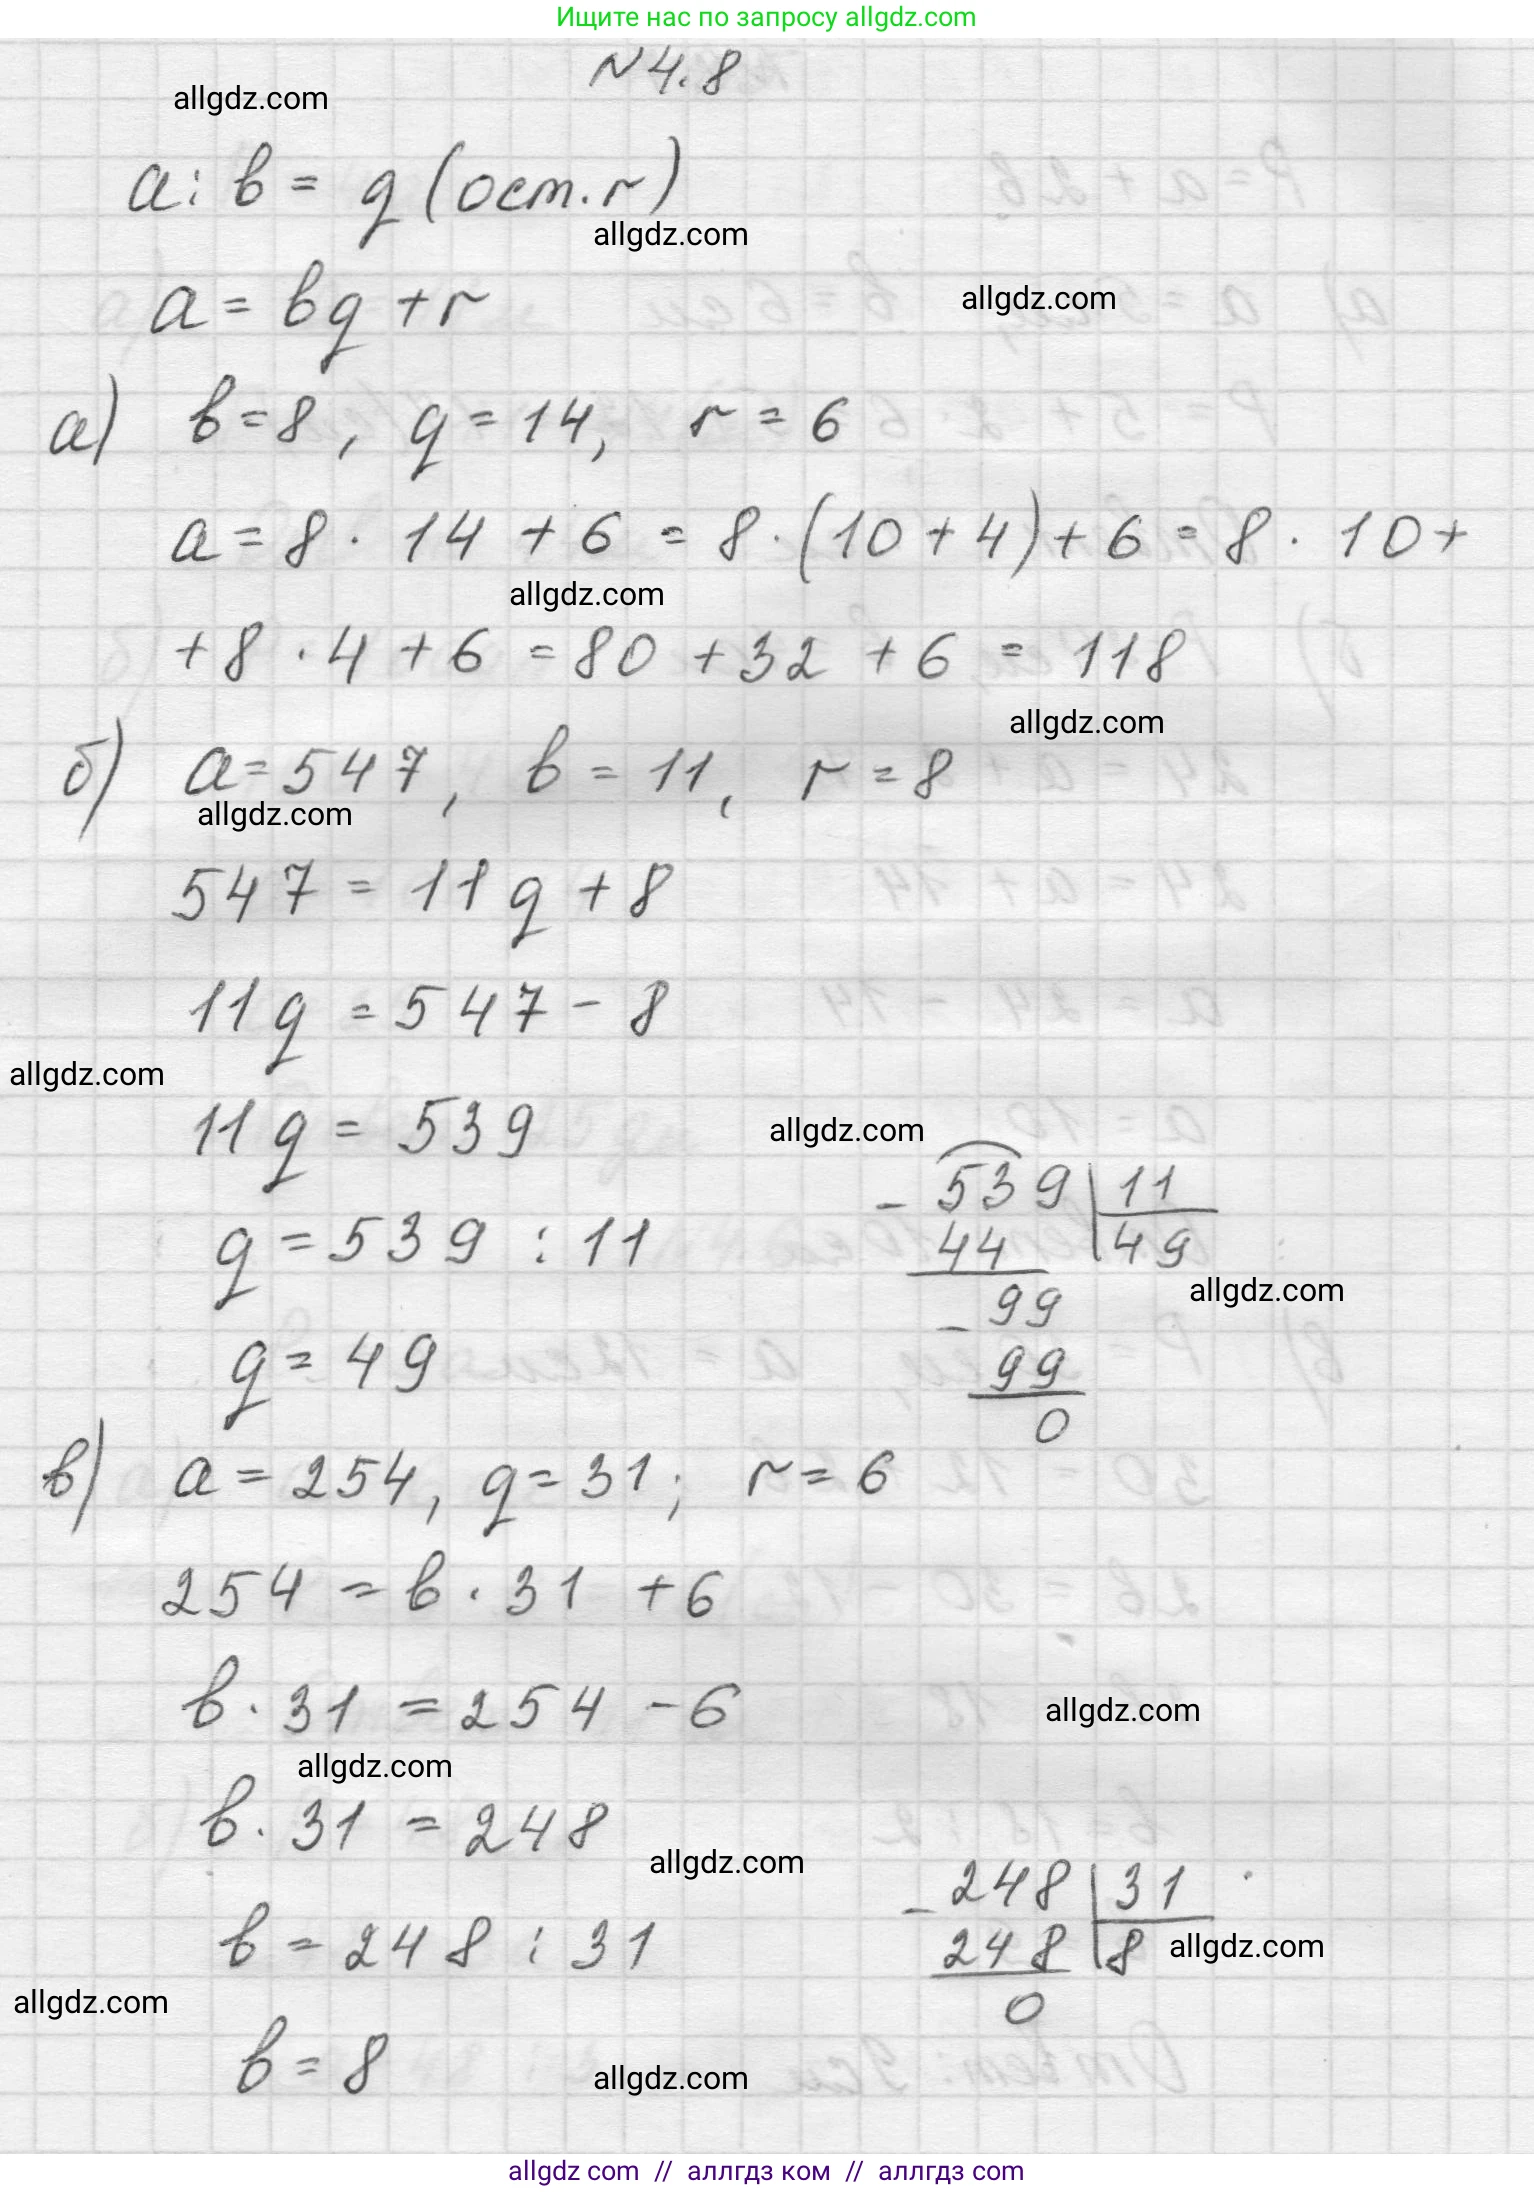 Ищите нас по запросу allgdz.com
N 4.8
allgdz.com
a : b = q (ост. r)
allgdz.com
a = bq + r
allgdz.com
а) b = 8, q = 14, r = 6
a = 8 · 14 + 6 = 8 · (10 + 4) + 6 = 8 · 10 +
allgdz.com
+ 8 · 4 + 6 = 80 + 32 + 6 = 118
allgdz.com
б) a = 547, b = 11, r = 8
allgdz.com
547 = 11q + 8
11q = 547 - 8
allgdz.com
11q = 539
allgdz.com
q = 539 : 11
- 539 | 11
44 | 49
allgdz.com
- 99
99
0
q = 49
в) a = 254, q = 31; r = 6
254 = b · 31 + 6
b · 31 = 254 - 6
allgdz.com
allgdz.com
b · 31 = 248
allgdz.com
b = 248 : 31
- 248 | 31
248 | 8
allgdz.com
0
allgdz.com
b = 8
allgdz.com
allgdz com // аллгдз ком // аллгдз com